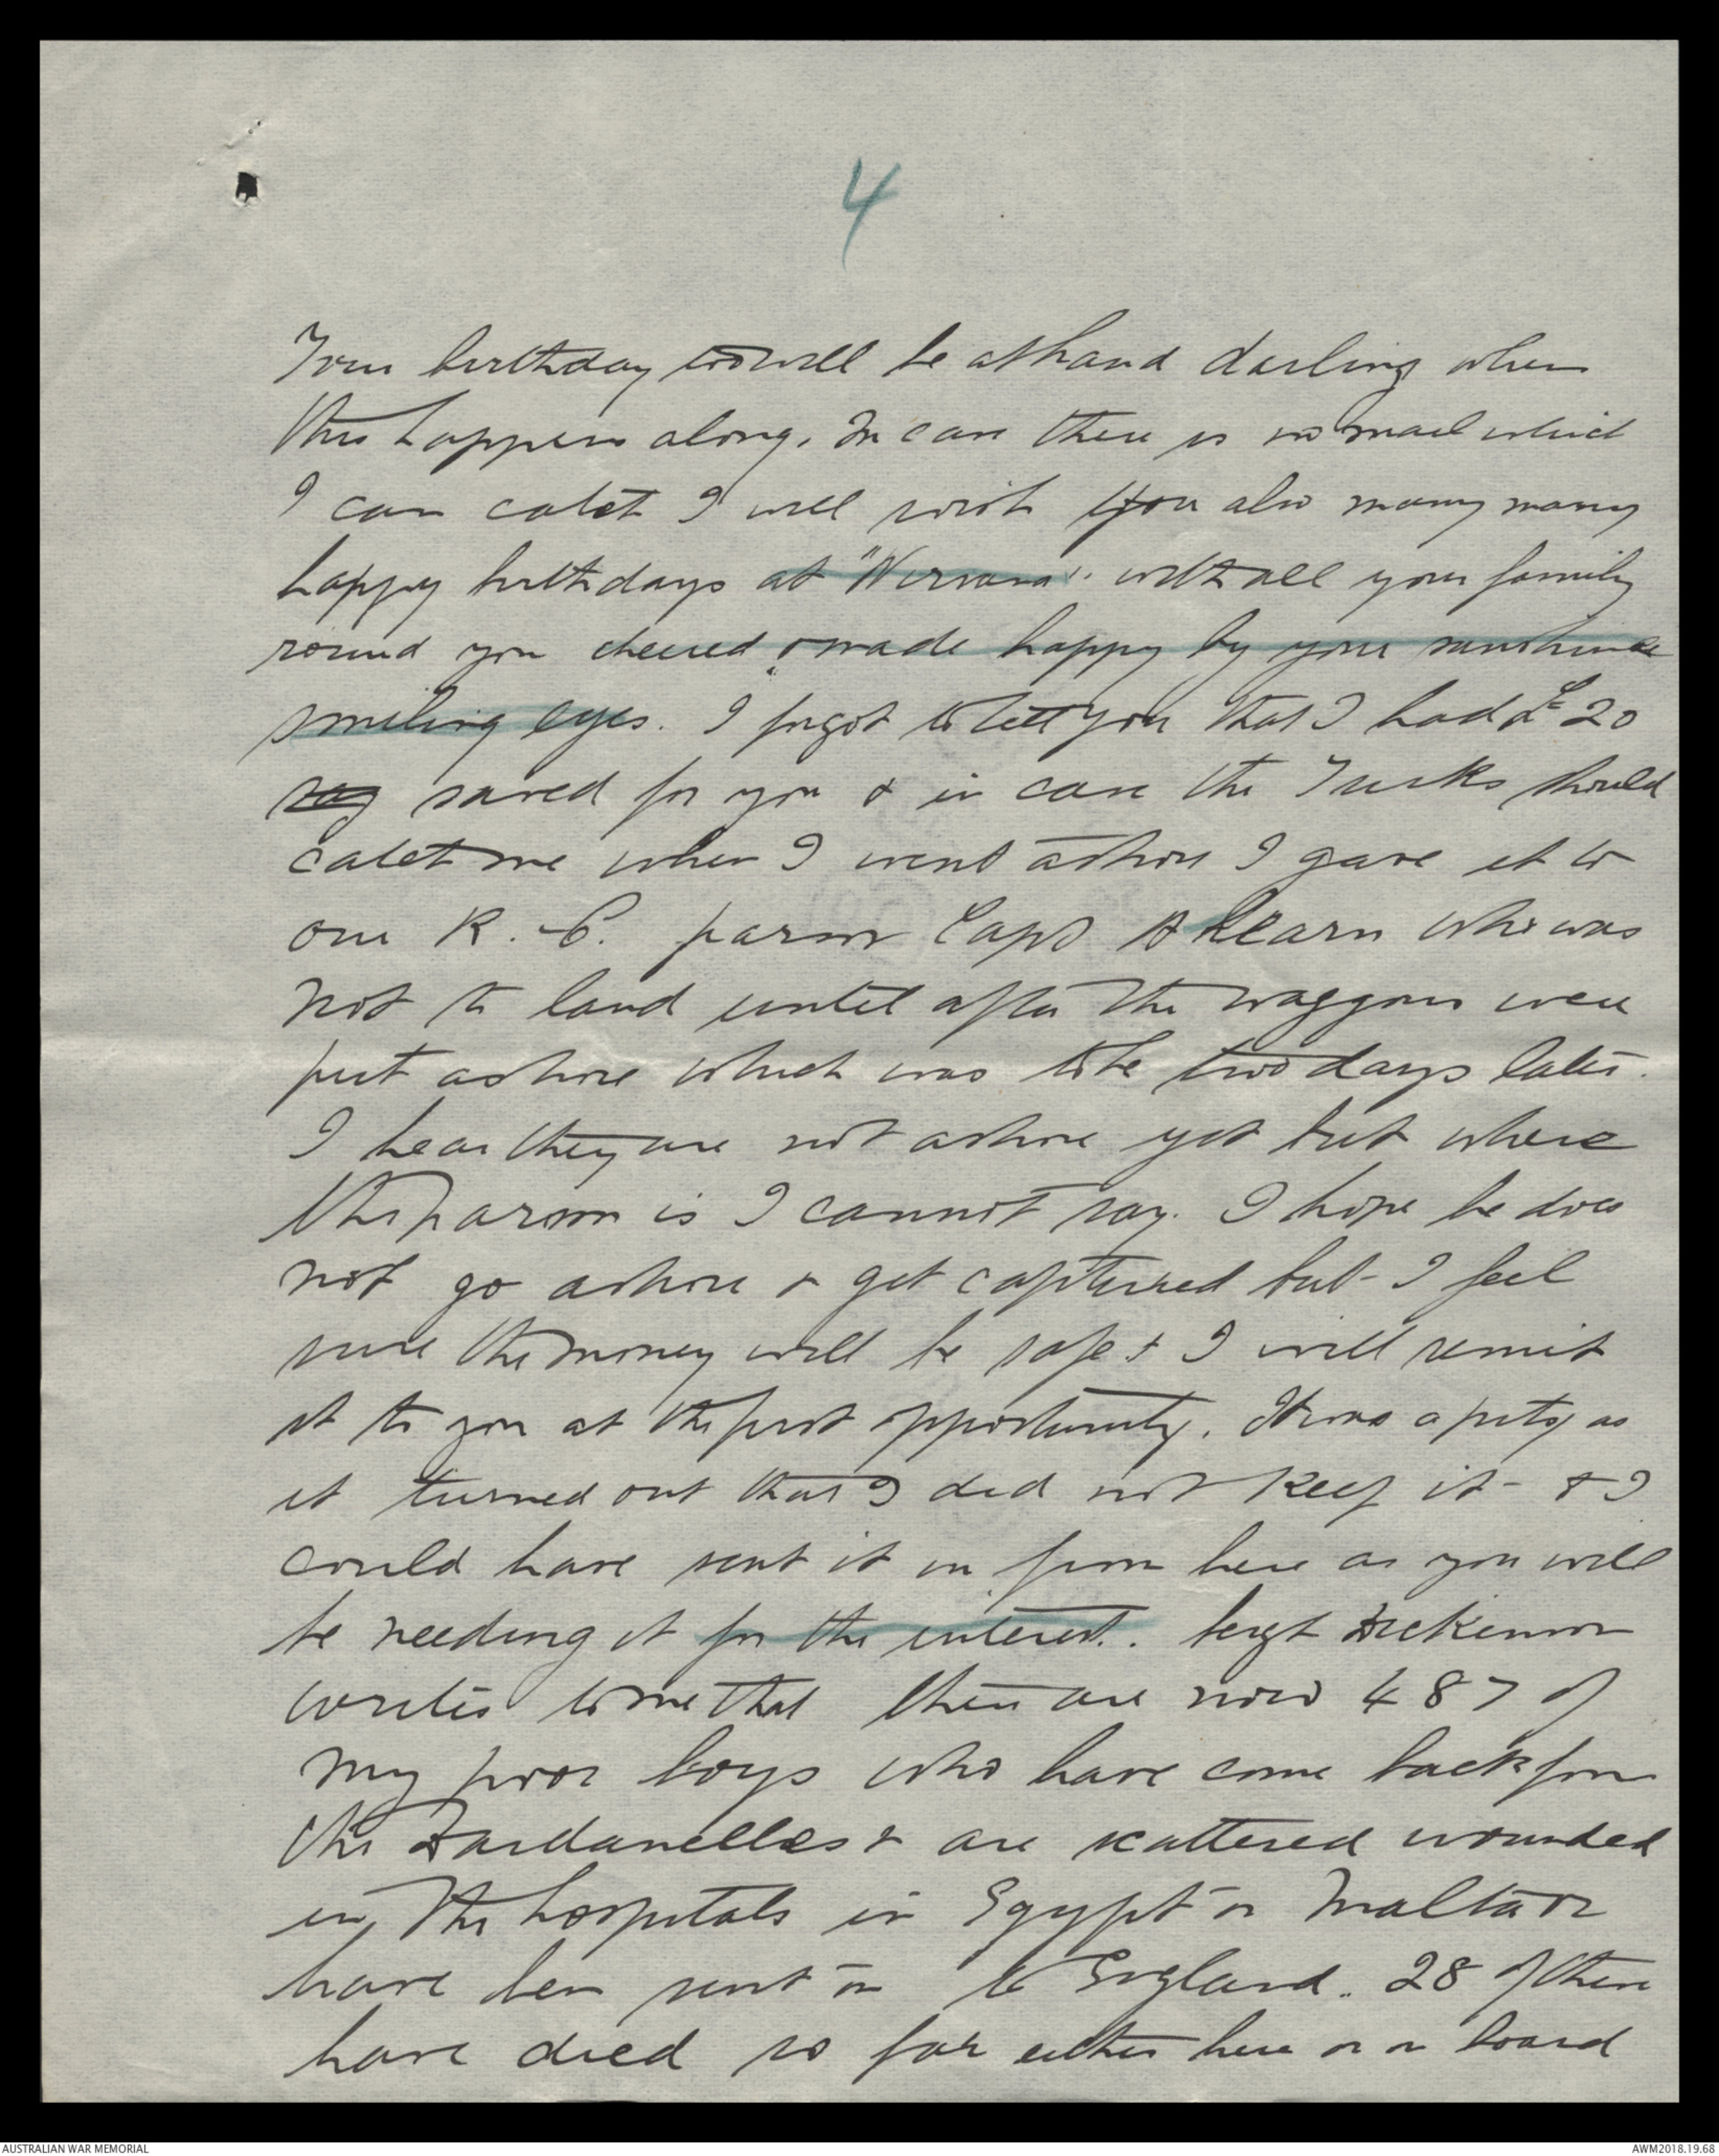 4
Your birthday too will be at hand darling when
this happens along. In case there is no mail which
I can catch I will wish you also many many
happy birthdays at "Nirvana" with all your family
round you cheered & made happy by your sunshine
smiling eyes. I forgot to tell you that I had £20
say saved for you & in case the Turks should
catch me when I went ashore I gave it to
our R.C. parson Capt Ahearn who was
not to land until after the waggons were
put ashore which was to be two days later.
I hear they are not ashore yet but where
the parson is I cannot say. I hope he does
not go ashore & get captured but I feel
sure the money will be safe & I will remit
it to you at the first opportunity. It was a pity as
it turned out that I did not keep it - & I
could have sent it on from here as you will
be needing it for the interest. Sergt Dickinson
writes to me that there are now 487 of
my poor boys who have come back from
the Dardanelles & are scattered wounded
in the hospitals in Egypt or Malta or
have been sent on to England. 28 of them
have died so far either here or on board
AUSTRALIAN WAR MEMORIAL
AWM2018.19.68